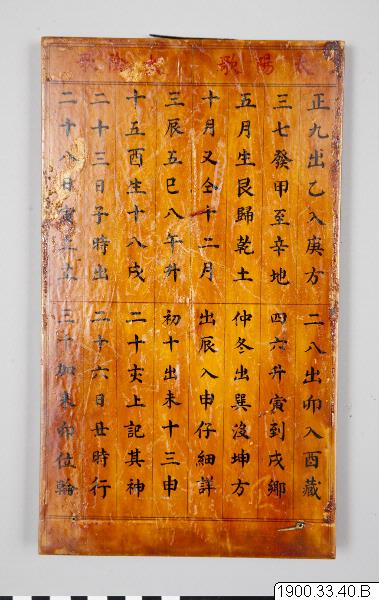 太陽歌
正九出乙入庚方 二八出卯入酉藏
三七發甲至辛地 四六升寅到戌鄉
五月生艮歸乾土 仲冬出巽沒坤方
十月又仝十二月 出辰入申仔細詳
太陰歌
三辰五巳八午升 初十出未十三申
十五酉生十八戌 二十亥上記其神
二十三日子時出 二十六日丑時行
二十八日寅 三十加來卯位輪
1900.33.40.B